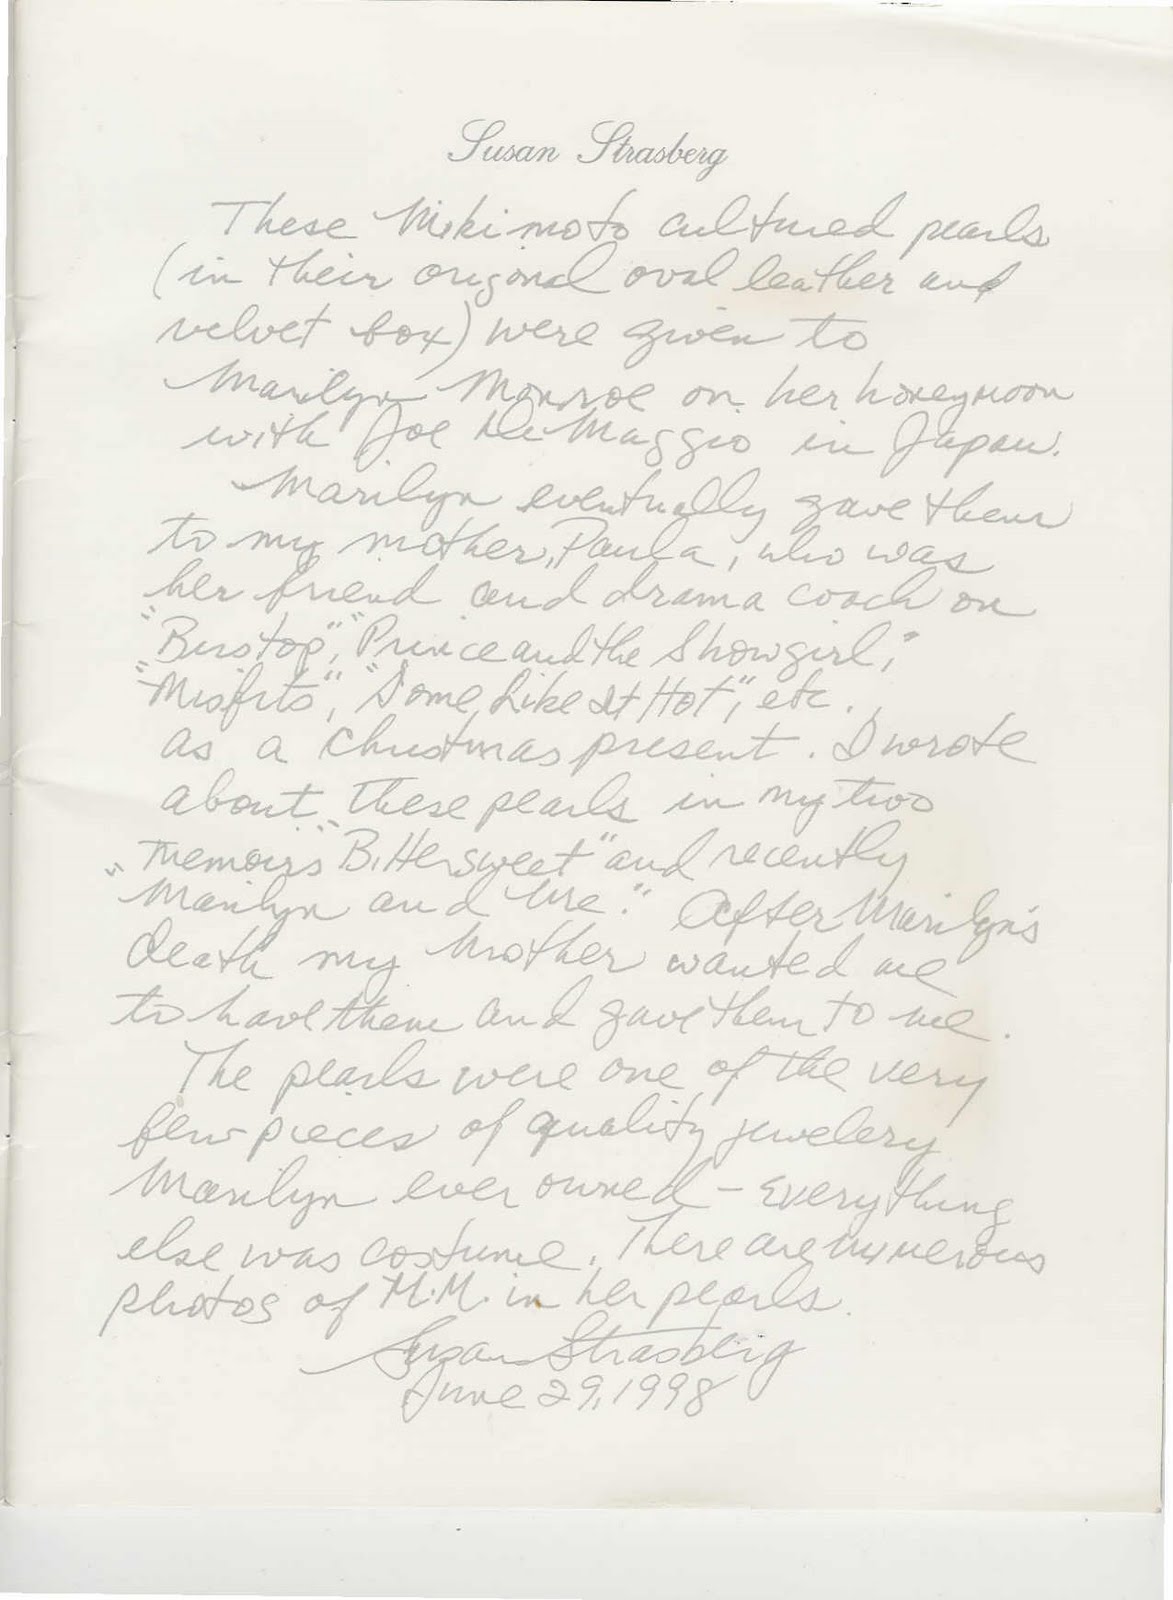 Susan Strasberg
These Mikimoto cultured pearls
(in their original oval leather and
velvet box) were given to
Marilyn Monroe on her honeymoon
with Joe DiMaggio in Japan.
Marilyn eventually gave them
to my mother, Paula, who was
her friend and drama coach on
"Busstop", "Prince and the Showgirl,"
"Misfits", "Some Like It Hot", etc.
as a Christmas present. I wrote
about these pearls in my two
memoirs "Bittersweet" and recently
"Marilyn and Me." After Marilyn's
death my mother wanted me
to have them and gave them to me.
The pearls were one of the very
few pieces of quality jewelery
Marilyn ever owned - everything
else was costume. There are numerous
photos of M.M. in her pearls.
Susan Strasberg
June 29, 1998